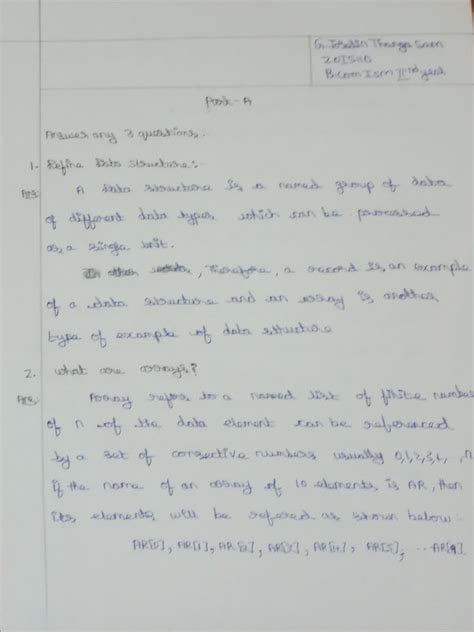 G. Jbelin Thanga Sam
20IS110
B.com Ism IInd year
Part - A
Answer any 3 questions:-
1. Define Data structure:-
Ans: A data structure is a named group of data
of different data types which can be processed
as a single unit.
In other words, Therefore, a record is, an example
of a data structure and an array is another
type of example of data structure
2. what are arrays?
Ans: Array refers to a named list of finite number
of n of the data element can be referenced
by a set of consective numbers usually 0,1,2,3, n
if the name of an array of 10 elements, is AR, then
its elements will be refered as shown below:
AR[0], AR[1], AR[2], AR[3], AR[4], AR[5], ... AR[9].